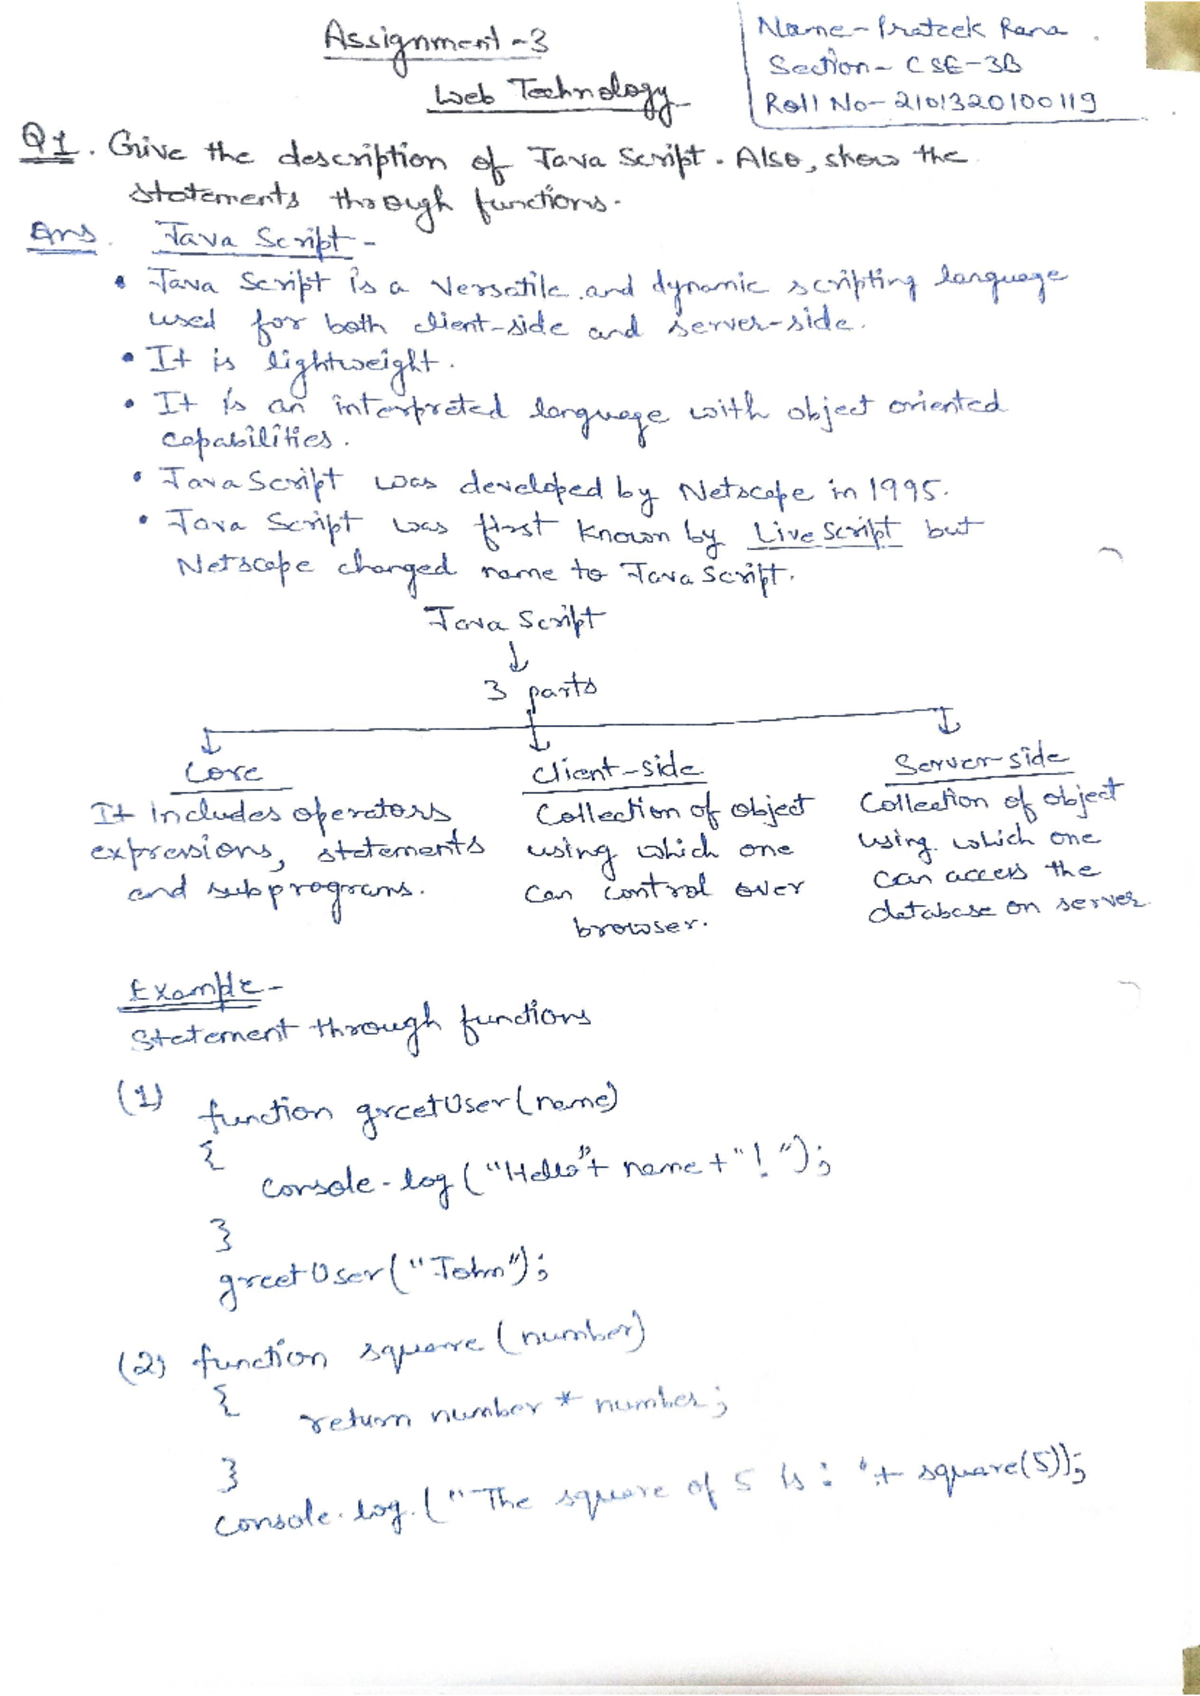 Assignment-3
Web Technology
Name- Prateek Rana
Section- CSE-3B
Roll No- 2101320100119
Q1. Give the description of Java Script. Also, show the
statements through functions.
Ans. Java Script -
• Java Script is a versatile and dynamic scripting language
used for both client-side and server-side.
• It is lightweight.
• It is an interpreted language with object oriented
capabilities.
• JavaScript was developed by Netscape in 1995.
• Java Script was first known by Live Script but
Netscape changed name to Java Script.
Java Script
↓
3 parts
↓ ↓ ↓
Core Client-side Server-side
It includes operators Collection of object Collection of object
expressions, statements using which one using which one
and subprograms. can control over can access the
browser. database on server.
Example -
Statement through functions
(1) function greetUser(name)
{
console.log("Hello"+ name+"!");
}
greetUser("John");
(2) function square (number)
{
return number * number;
}
console.log.("The square of 5 is: "+ square(5));